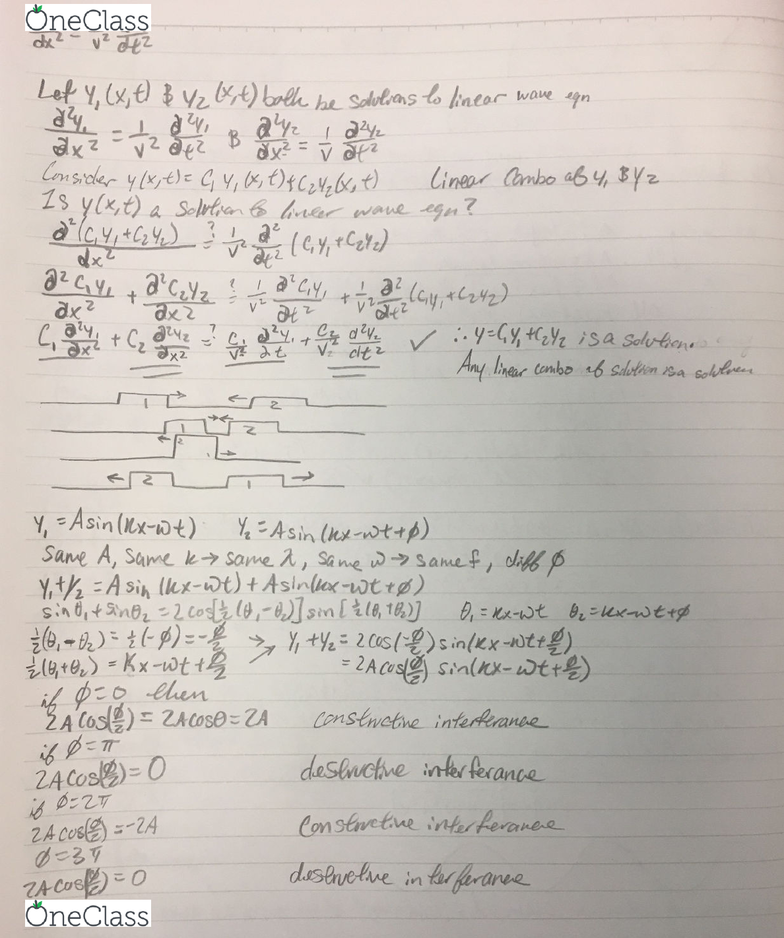 OneClass
dx² = v² dt²
Let y₁(x,t) & y₂(x,t) both be solutions to linear wave eqn
∂²y₁/∂x² = 1/v² ∂²y₁/∂t² & ∂²y₂/∂x² = 1/v ∂²y₂/∂t²
Consider y(x,t) = C₁y₁(x,t)+C₂y₂(x,t) Linear Combo of y₁ & y₂
Is y(x,t) a solution to linear wave eqn?
∂²(C₁y₁+C₂y₂)/dx² ?= 1/v² ∂²/∂t² (C₁y₁+C₂y₂)
∂²C₁y₁/∂x² + ∂²C₂y₂/∂x² ?= 1/v² ∂²C₁y₁/∂t² + 1/v² ∂²/∂t² (C₁y₁+C₂y₂)
C₁ ∂²y₁/∂x² + C₂ ∂²y₂/∂x² ?= C₁/v² ∂²y₁/∂t + C₂/v² d²y₂/dt² ✓ ∴ y=C₁y₁+C₂y₂ is a solution.
Any linear combo of solution is a solution
1 → ← 2
1 → ← 2
← 2 1 →
← 2 1 →
y₁ = Asin(kx-wt) y₂ = Asin(kx-wt+φ)
Same A, Same k → same λ, Same w → same f, diff φ
y₁+y₂ = Asin(kx-wt) + Asin(kx-wt+φ)
sinθ₁+sinθ₂ = 2cos[½(θ₁-θ₂)] sin[½(θ₁+θ₂)] θ₁=kx-wt θ₂=kx-wt+φ
½(θ₁-θ₂) = ½(-φ) = -φ/2 → y₁+y₂ = 2cos(-φ/2) sin(kx-wt+φ/2)
½(θ₁+θ₂) = kx-wt+φ/2 → = 2Acos(φ/2) sin(kx-wt+φ/2)
if φ=0 then
2Acos(φ/2) = 2Acosθ = 2A constructive interferance
if φ=π
2Acos(φ/2) = 0 destructive interferance
if φ=2π
2Acos(φ/2) = -2A Constructive interferance
φ=3π
2Acos(φ/2) = 0 destructive interferance
OneClass